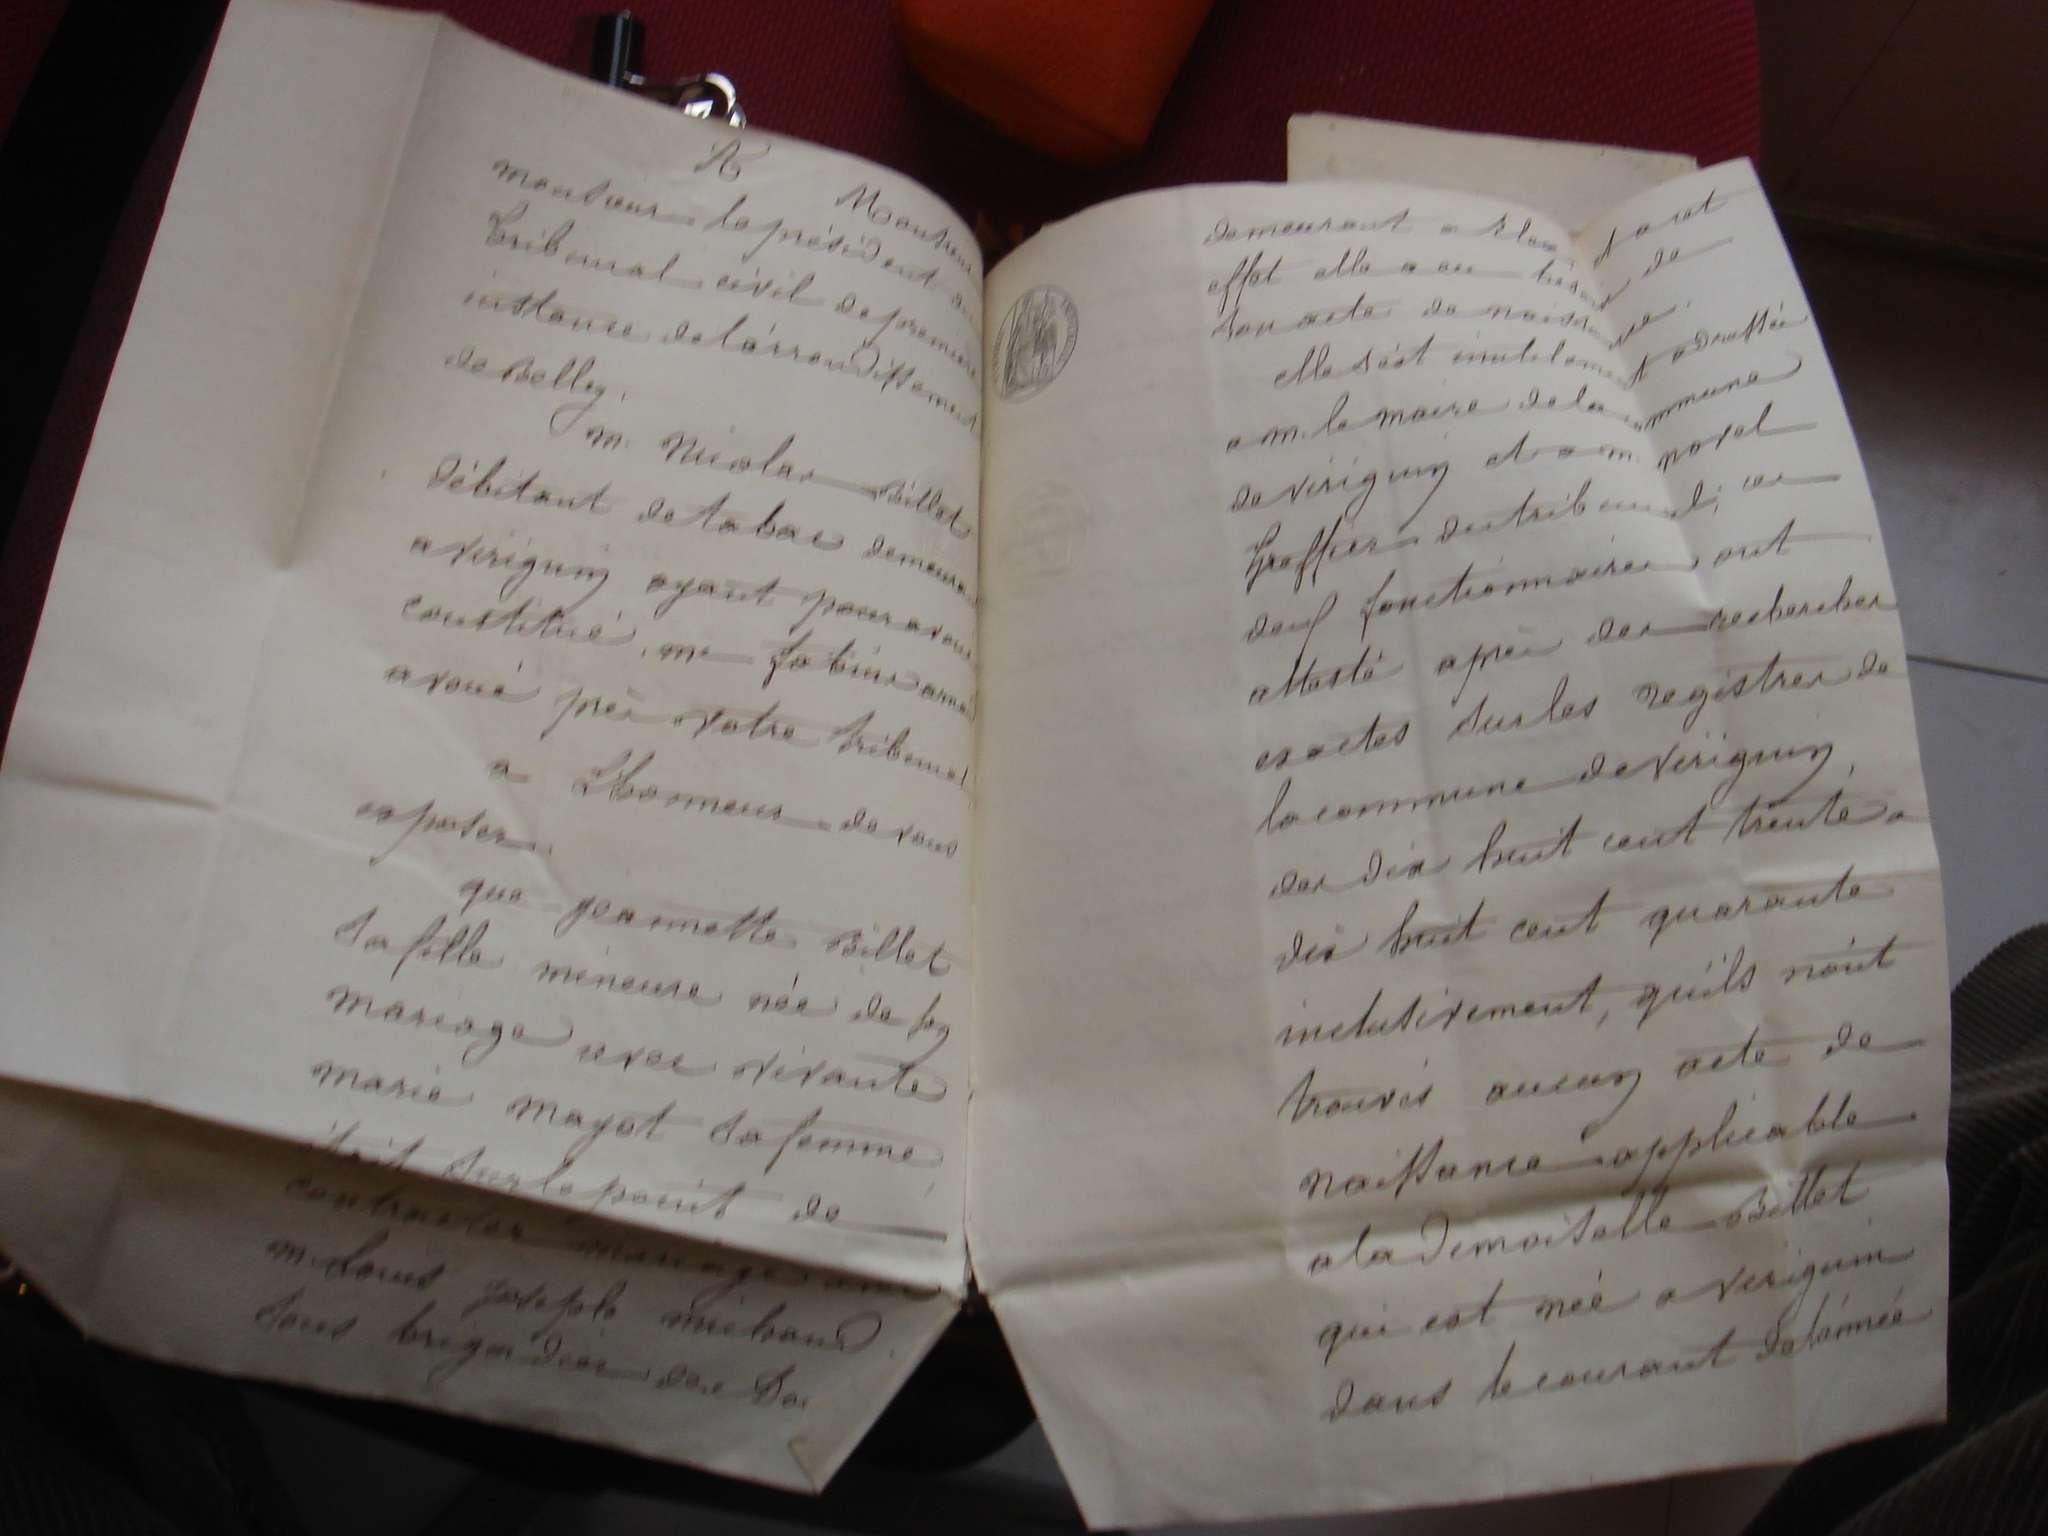 A
Monsieur
monsieur le président du
tribunal civil de première
instance de l'arrondissement
de Belley.
m. Nicolas Billet
débitant de tabac demeurant
a virignin ayant pour avoué
constitué, me
avoué près votre tribunal
a Lhonneur de vous
exposer.
que jeannette Billet
sa fille mineure née de son
mariage avec vivante
marie mayot sa femme,
était sur le point de
contracter mariage avec
m. Louis joseph michaud
sous brigadier des Dou
demeurant a
effet elle a eu besoin de
son acte de naissance.
elle s'est inutilement adressée
a m. le maire de la commune
de virignin et a m. morel
Greffier du tribunal, ces
deux fonctionnaires ont
attesté après des recherches
exactes sur les registres de
la commune de virignin,
des dix huit cent trente a
dix huit cent quarante
inclusivement, qu'ils n'ont
trouvés aucun acte de
naissance applicable
a la demoiselle Billet
qui est née a virignin
dans le courant de l'année